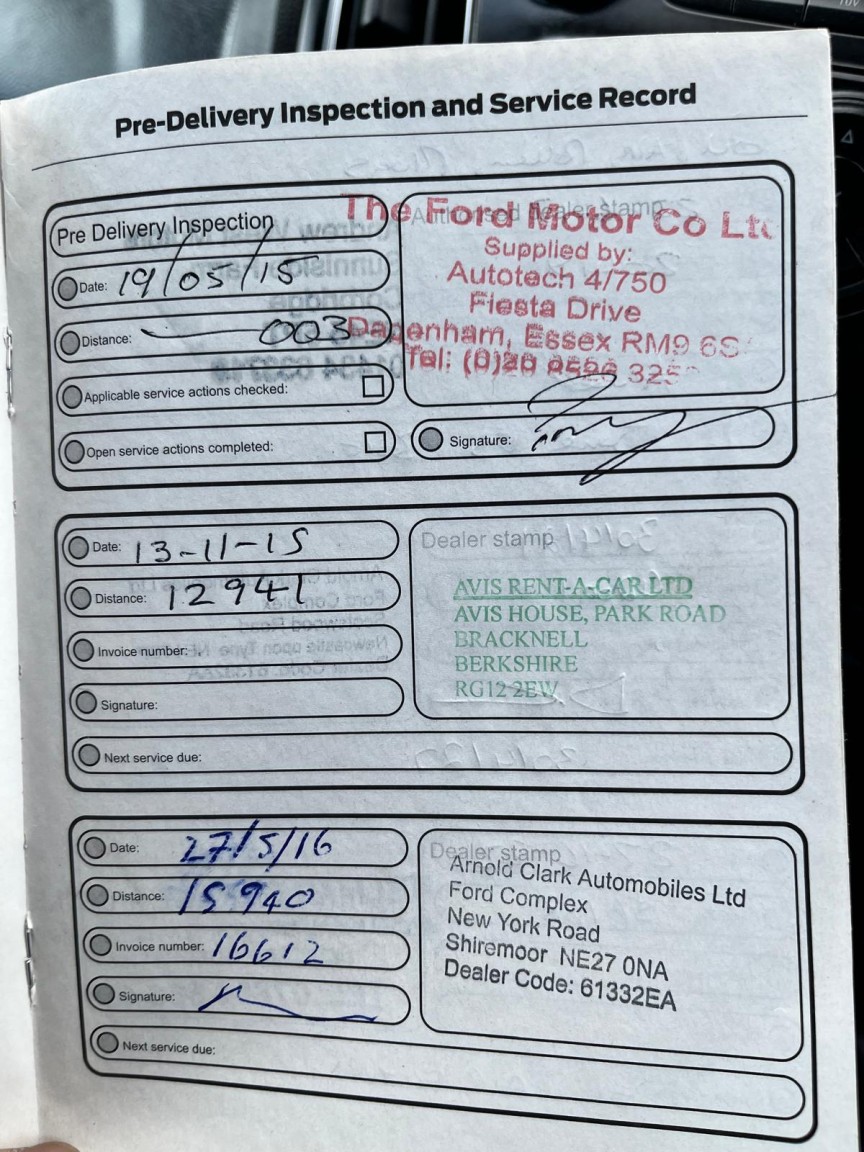 Pre-Delivery Inspection and Service Record
Pre Delivery Inspection
Date: 19/05/15
Distance: 003
Applicable service actions checked:
Open service actions completed:
Authorised dealer stamp
The Ford Motor Co Ltd
Supplied by:
Autotech 4/750
Fiesta Drive
Dagenham, Essex RM9 6S
Tel: (0)20
Signature:
Date: 13-11-15
Distance: 12941
Invoice number:
Signature:
Next service due:
Dealer stamp
AVIS RENT-A-CAR LTD
AVIS HOUSE, PARK ROAD
BRACKNELL
BERKSHIRE
RG12 2EW
Date: 27/5/16
Distance: 15940
Invoice number: 16612
Signature:
Next service due:
Dealer stamp
Arnold Clark Automobiles Ltd
Ford Complex
New York Road
Shiremoor NE27 0NA
Dealer Code: 61332EA